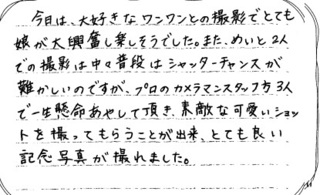 今日は、大好きなワンワンとの撮影でとても
娘が大興奮し楽しそうでした。また、めいと2人
での撮影は中々普段はシャッターチャンスが
難かしいのですが、プロのカメラマンスタッフ方3人
で一生懸命あやして頂き、素敵な可愛いショッ
トを撮ってもらうことが出来、とても良い
記念写真が撮れました。